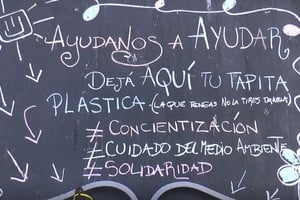 AYUDANOS A AYUDAR
DEJÁ AQUÍ TU TAPITA
PLÁSTICA. (LA QUE TENGAS NO LA TIRES TRAELA)
≠ CONCIENTIZACIÓN
≠ CUIDADO DEL MEDIO AMBIENTE
≠ SOLIDARIDAD